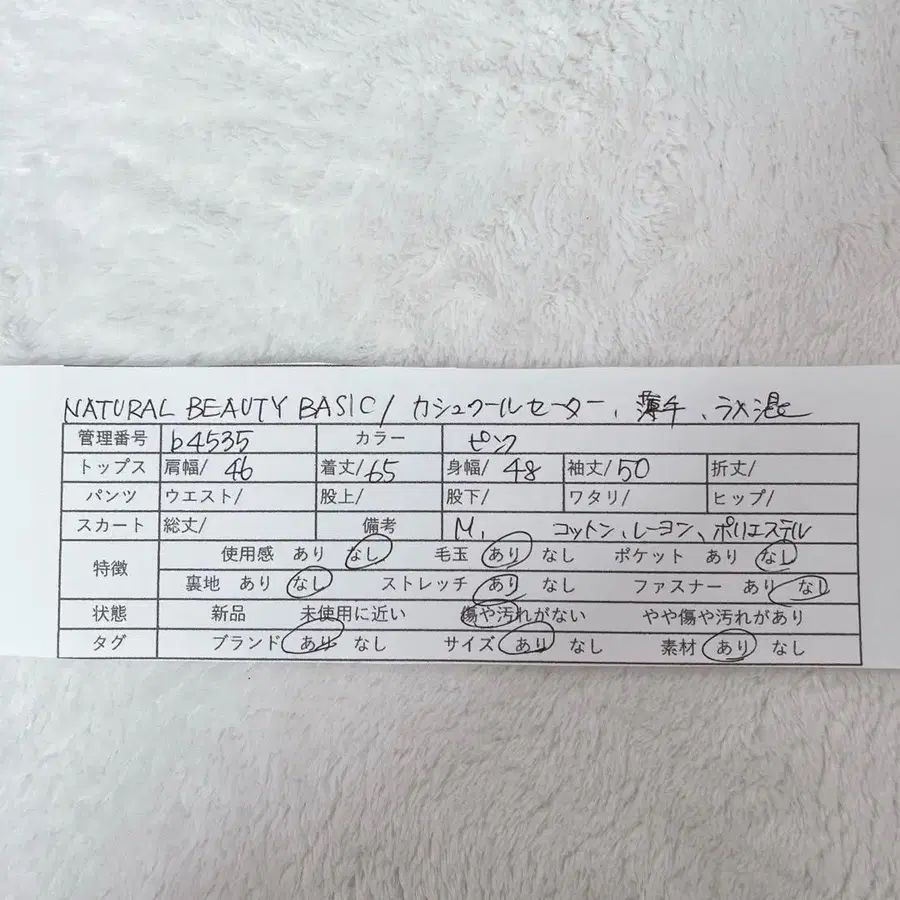 NATURAL BEAUTY BASIC/ カシュクールセーター、薄手、ラメ混
管理番号 b4535 カラー ピンク
トップス 肩幅/ 46 着丈/65 身幅/ 48 袖丈/50 折丈/
パンツ ウエスト/ 股上/ 股下/ ワタリ/ ヒップ/
スカート 総丈/ 備考 M、 コットン、レーヨン、ポリエステル
特徴 使用感 あり なし 毛玉 あり なし ポケット あり なし
裏地 あり なし ストレッチ あり なし ファスナー あり なし
状態 新品 未使用に近い 傷や汚れがない やや傷や汚れがあり
タグ ブランド あり なし サイズ あり なし 素材 あり なし